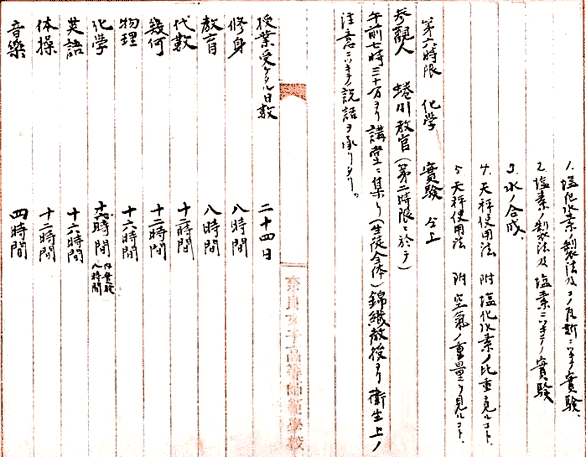 1. 塩化水素ノ製法及コノ瓦斯ニツキテノ實験.
2. 塩素ノ製法及塩素ニツキテノ實験
3. 水ノ合成.
4. 天秤使用法 附 塩化水素ノ比重ヲ見ルコト.
5. 天秤使用法 附 空氣ノ重量ヲ見ルコト.
第六時限 化学 實験 仝上
参観人 蜷川教官(第二時限ニ於テ)
午前七時三十分ヨリ講堂ニ集リ(生徒全体)錦織教授ヨリ衛生上ノ
注意スベキ説話ヲ承リタリ。
奈良女子高等師範學校
授業受ケタル日数 二十四日
修身 八時間
教育 八時間
代数 十一時間
幾何 十二時間
物理 十六時間
化学 時間 内實験 八時間
英語 十六時間
体操 十二時間
音樂 四時間